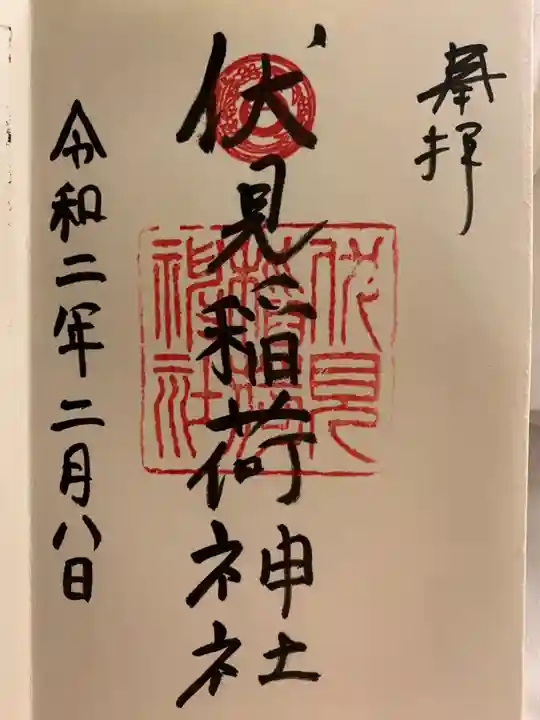 奉拝
伏見稲荷神社
伏見稲荷神社
令和二年二月八日